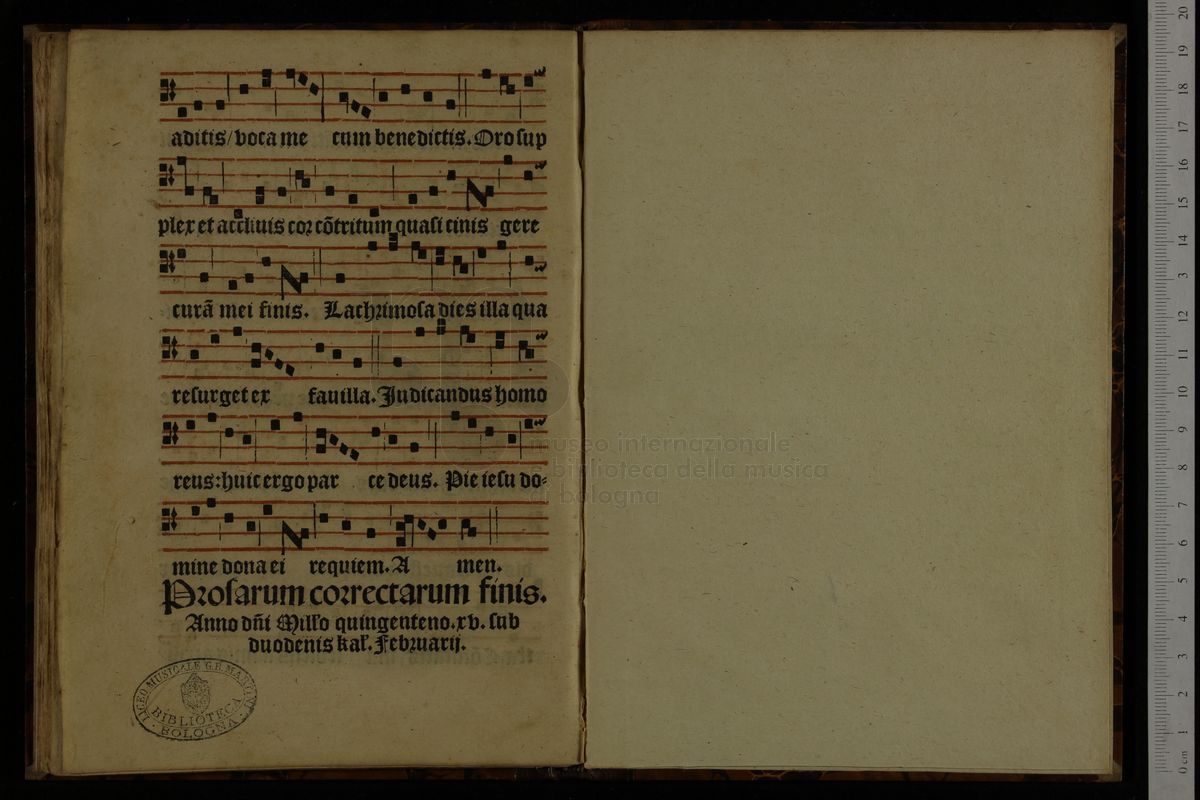 aditis/voca me cum benedictis. Oro sup
plex et acclinis cor cõtritum quasi cinis gere
curã mei finis. Lachrimosa dies illa qua
resurget ex fauilla. Judicandus homo
reus: huic ergo par ce deus. Pie iesu do-
mine dona ei requiem. A men.
Prosarum correctarum finis.
Anno dñi Mill'o quingenteno.xv. sub
duodenis kal'. Februarij.
LICEO MUSICALE G.B. MARTINI
BIBLIOTECA
BOLOGNA
museo internazionale
e biblioteca della musica
di bologna
0 cm 1 2 3 4 5 6 7 8 9 10 11 12 13 14 15 16 17 18 19 20